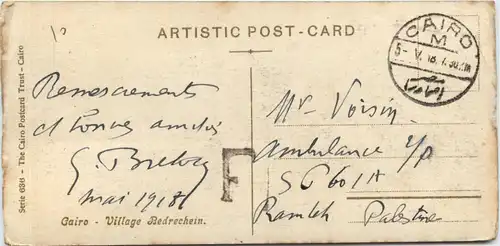 ARTISTIC POST-CARD
CAIRO
M
5- V. 18 7.30
Serie 636 - The Cairo Postcard Trust - Cairo
Remerciements
et bonnes amitiés
G.
mai 1918
Cairo - Village Bedrechein.
F
Mr Voisin
Ambulance
SP 601A
Ramleh Palestine